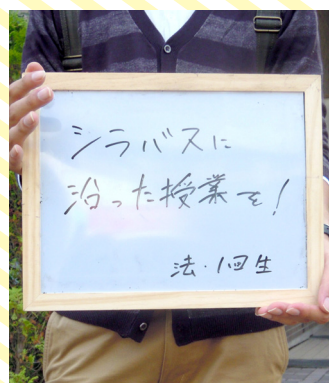 シラバスに
沿った授業を!
法・1回生